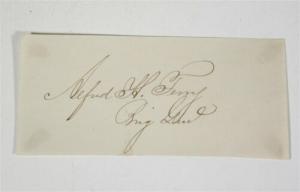 Alfred H. Terry
Brig Genl